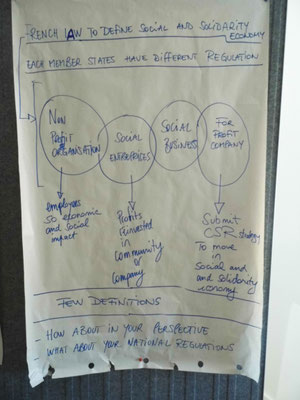 FRENCH LAW TO DEFINE SOCIAL AND SOLIDARITY
ECONOMY
EACH MEMBER STATES HAVE DIFFERENT REGULATION
NON
PROFIT
ORGANISATION
SOCIAL
ENTERPRISES
SOCIAL
BUSINESS
FOR
PROFIT
COMPANY
employees
so economic
and social
impact
Profits
reinvested
in
Community
or
Company
Submit
CSR strategy
To move
in
Social and
and solidarity
economy
FEW DEFINITIONS
- HOW ABOUT IN YOUR PERSPECTIVE
- WHAT ABOUT YOUR NATIONAL REGULATIONS